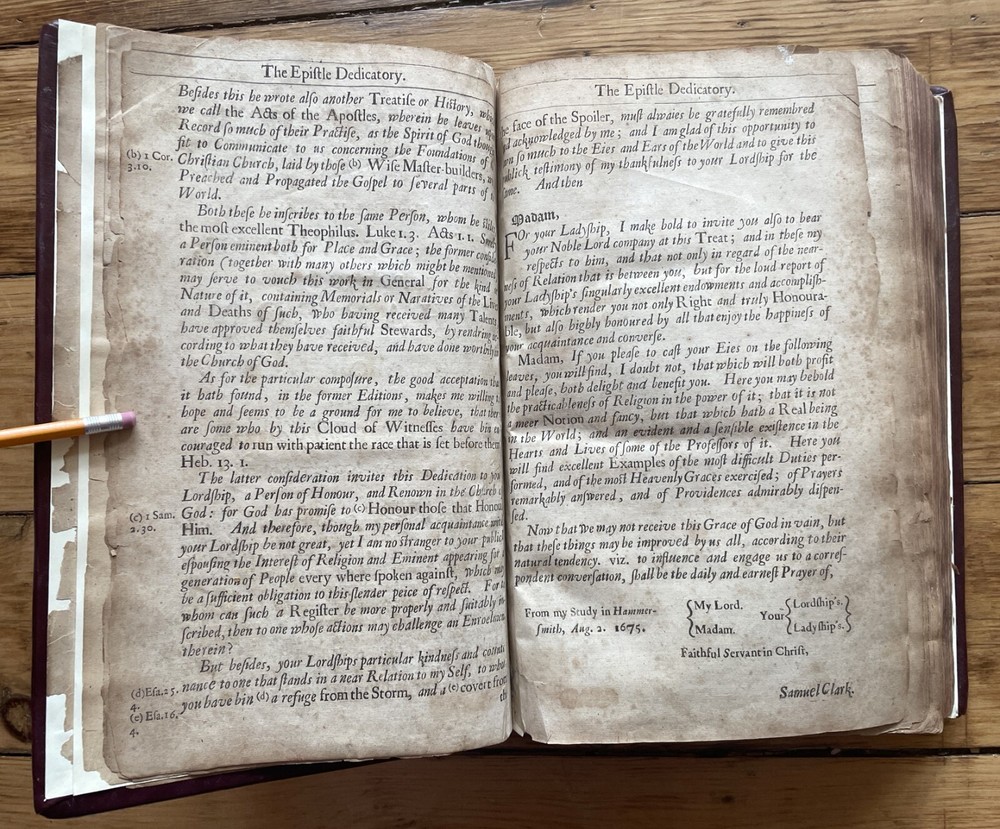 The Epiſtle Dedicatory.
Beſides this he wrote alſo another Treatiſe or Hiſtory,
we call the Acts of the Apoſtles, wherein he leaves
Record ſo much of their Practiſe, as the Spirit of God
fit to Communicate to us concerning the Foundations of
(b) 1 Cor.
3.10.
Chriſtian Church, laid by thoſe (b) Wiſe Maſter-builders,
Preached and Propagated the Goſpel to ſeveral parts of
World.
Both theſe he inſcribes to the ſame Perſon, whom he
the moſt excellent Theophilus. Luke 1. 3. Acts 1. 1.
a Perſon eminent both for Place and Grace; the former
ration (together with many others which might be mentioned
may ſerve to vouch this work in General for the kind
Nature of it, containing Memorials or Naratives of the
and Deaths of ſuch, who having received many
have approved themſelves faithful Stewards, by rendring
cording to what they have received, and have done
the Church of God.
As for the particular compoſure, the good acceptation
it hath found, in the former Editions, makes me willing
hope and ſeems to be a ground for me to believe, that
are ſome who by this Cloud of Witneſſes have bin
couraged to run with patient the race that is ſet before
Heb. 13. 1.
The latter conſideration invites this Dedication to
Lordſhip, a Perſon of Honour, and Renown in the Church
(c) 1 Sam.
2.30.
God: for God has promiſe to (c) Honour thoſe that
Him. And therefore, though my perſonal acquaintance
your Lordſhip be not great, yet I am no ſtranger to your
eſpouſing the Intereſt of Religion and Eminent appearing
generation of People every where ſpoken againſt, which
be a ſufficient obligation to this ſlender peice of reſpect.
whom can ſuch a Regiſter be more properly and ſuitably
ſcribed, then to one whoſe actions may challenge an
therein?
But beſides, your Lordſhips particular kindneſs and
(d) Eſa. 25.
4.
nance to one that ſtands in a near Relation to my Self, to
you have bin (d) a refuge from the Storm, and a (e) covert from
(e) Eſa. 16.
4.
The Epiſtle Dedicatory.
face of the Spoiler, muſt alwaies be gratefully remembred
acknowledged by me; and I am glad of this opportunity to
ſo much to the Eies and Ears of the World and to give this
publick teſtimony of my thankfulneſs to your Lordſhip for the
ſame. And then
Madam,
FOr your Ladyſhip, I make bold to invite you alſo to bear
your Noble Lord company at this Treat; and in theſe my
reſpects to him, and that not only in regard of the near-
neſs of Relation that is between you, but for the loud report of
your Ladyſhip's ſingularly excellent endowments and accompliſh-
ments, which render you not only Right and truly Honoura-
ble, but alſo highly honoured by all that enjoy the happineſs of
your acquaintance and converſe.
Madam, If you pleaſe to caſt your Eies on the following
leaves, you will find, I doubt not, that which will both profit
and pleaſe, both delight and benefit you. Here you may behold
the practicableneſs of Religion in the power of it; that it is not
a meer Notion and fancy, but that which hath a Real being
in the World; and an evident and a ſenſible exiſtence in the
Hearts and Lives of ſome of the Profeſſors of it. Here you
will find excellent Examples of the moſt difficult Duties per-
formed, and of the moſt Heavenly Graces exerciſed; of Prayers
remarkably anſwered, and of Providences admirably diſpen-
ſed.
Now that We may not receive this Grace of God in vain, but
that theſe things may be improved by us all, according to their
natural tendency. viz. to influence and engage us to a correſ-
pondent converſation, ſhall be the daily and earneſt Prayer of,
From my Study in Hammer-
ſmith, Aug. 2. 1675.
{My Lord.
Madam. Your {Lordſhip's.
Ladyſhip's.}
Faithful Servant in Chriſt,
Samuel Clark.